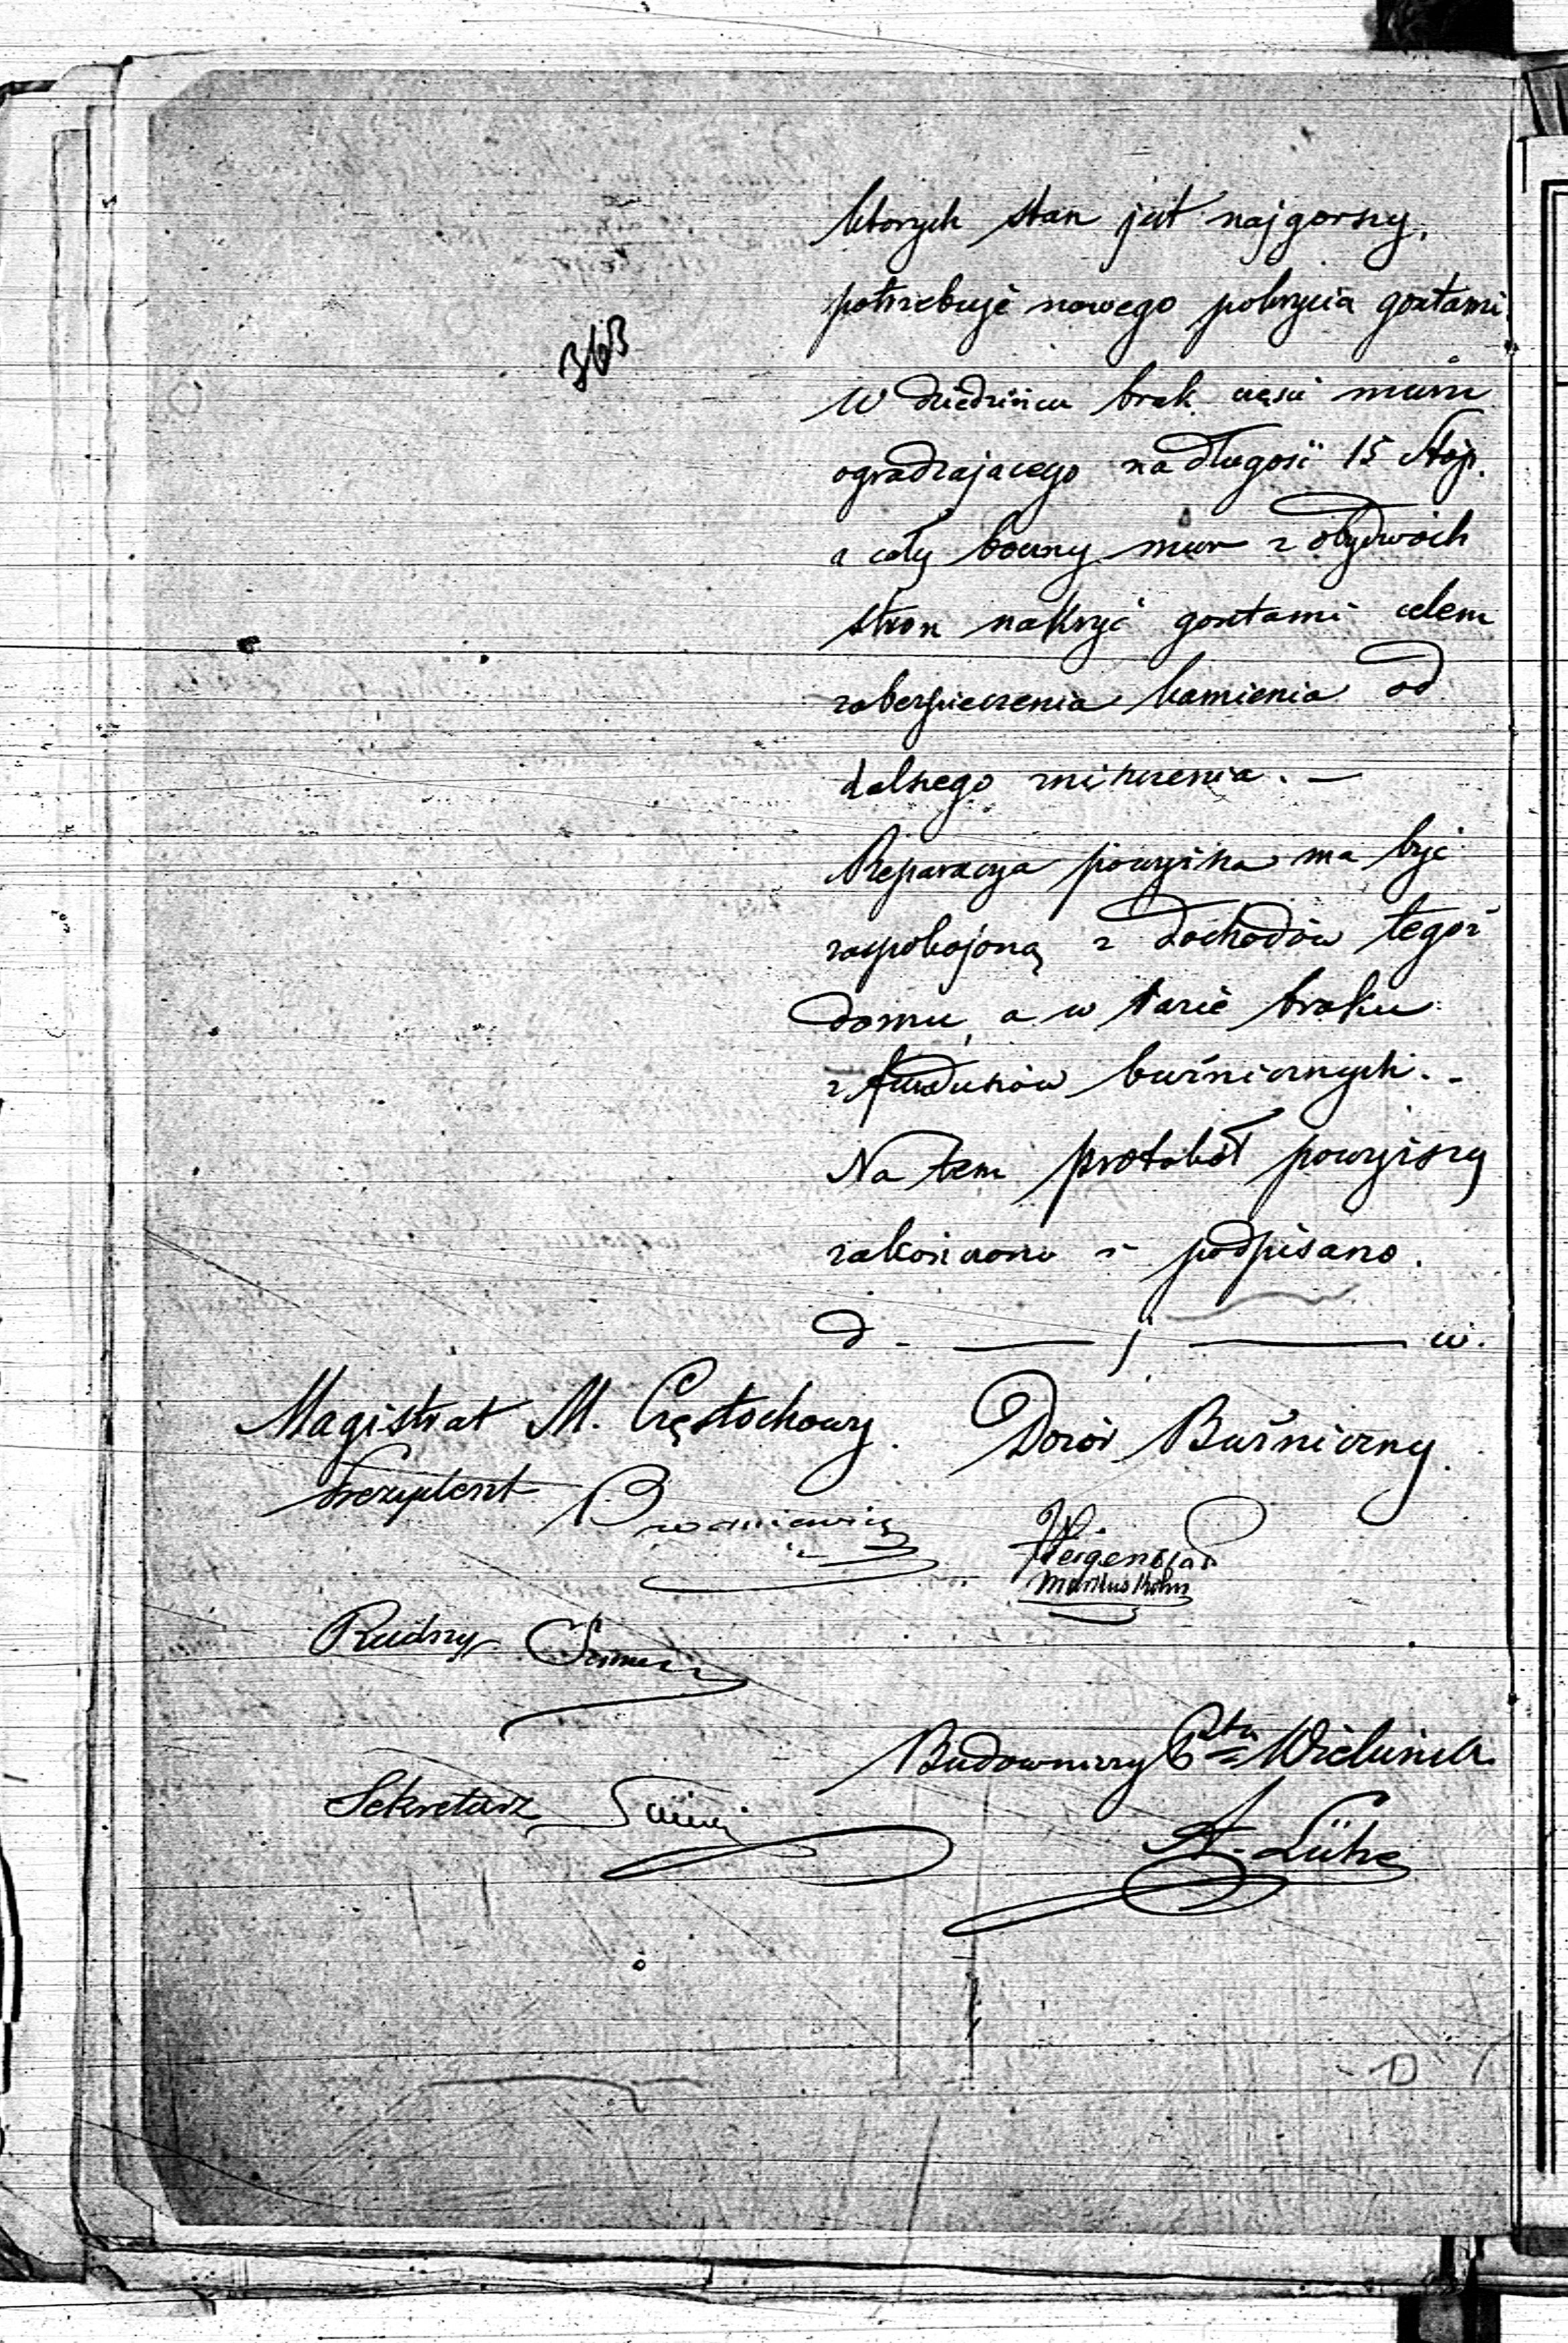 363
których stan jest najgorszy,
potrzebuje nowego pokrycia gontami.
W dziedzińcu brak części muru
ogradzającego na długość 15 stóp.
a cały boczny mur z obydwóch
stron nakryć gontami celem
zabezpieczenia kamienia od
dalszego zniszczenia. —
Reparacya powyższa ma być
zaspokojoną z dochodów tegoż
domu, a w razie braku
z funduszów bużnicznych. -
Na tem protokół powyższy
zakończono i podpisano.
d. — j — w.
Magistrat M. Częstochowy. Dozór Bużniczny.
Prezydent
Markus Kohn
Radny
Budowniczy Ptu Wieluńsk
Sekretarz
A. Lühe
D